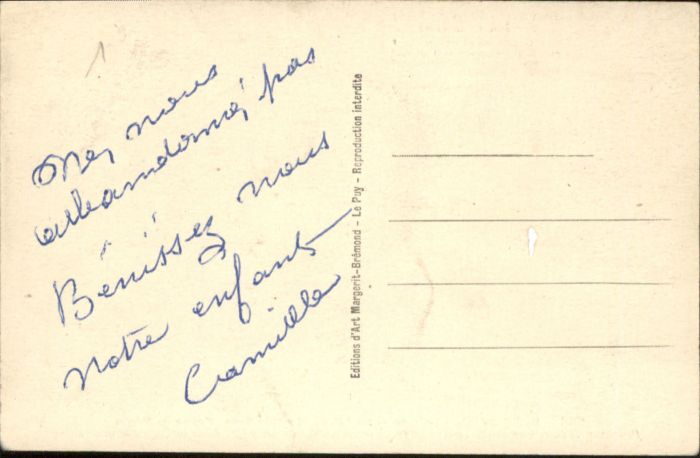 nous
abandonnez pas
Bénissez nous
notre enfant
Camille
Editions d'Art Margerit-Brémond - Le Puy - Reproduction interdite